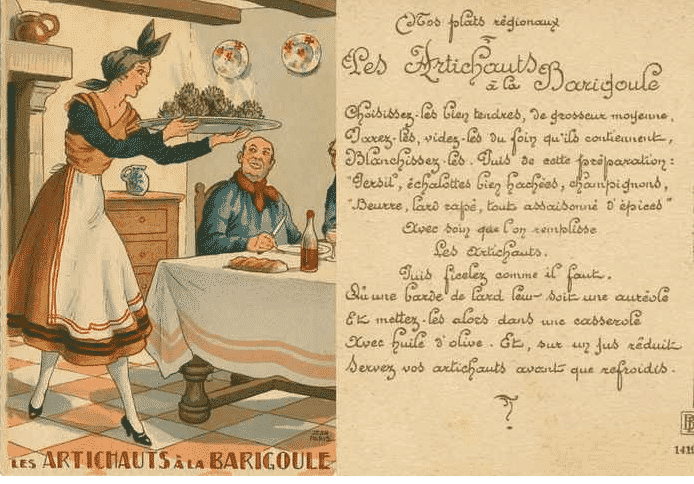 JEAN PARIS
LES ARTICHAUTS À LA BARIGOULE
Nos plats régionaux
Les Artichauts
à la Barigoule
Choisissez-les bien tendres, de grosseur moyenne,
Parez-les, videz-les du foin qu'ils contiennent,
Blanchissez-les. Puis de cette préparation:
"Persil", échalottes bien hachées, champignons,
"Beurre, lard rapé, tout assaisonné d'épices"
Avec soin que l'on remplisse
Les artichauts.
Puis ficelez comme il faut.
Qu'une barde de lard leur soit une auréole
Et mettez-les alors dans une casserole
Avec huile d'olive. Et, sur un jus réduit
Servez vos artichauts avant que refroidis.